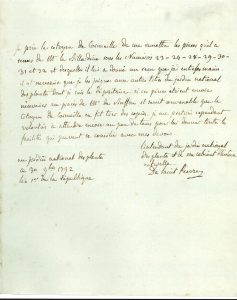 je prie le citoyen de Corneille de me remettre les pieces qu'il a
reçues de Mr de la Billardiere sous les Numeros 23-24-28-29-30-
31 et 32 et desquelles il lui a donné un reçu que j'ai
il est necessaire que je les joigne aux autres titres du jardin national
des plantes dont je suis le depositaire. si ces pieces etoient encore
necessaires au procès de Mr de Buffon il seroit convenable que le
citoyen de Corneille en fit tirer des copies. je me porterai cependant
volontiers à attendre encore un peu de tems pour lui donner toute la
facilité qui peuvent se concilier avec mes devoirs
au jardin national des plantes
ce 30 9bre 1792
l'an 1er de la République
l'intendant du jardin national
des plantes et de son cabinet d'histoire
naturelle
De Saint Pierre